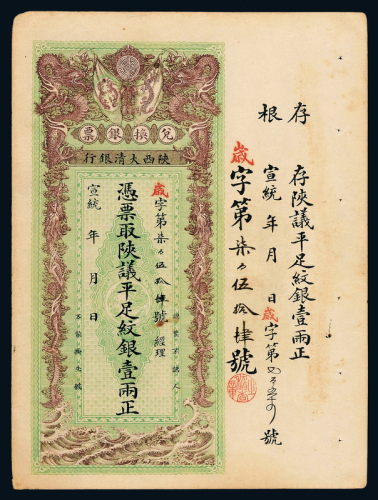 存根
存陝議平足紋銀壹兩正
宣統 年 月 日 歲字第 號
歲字第柒百伍拾肆號
兌換銀票
陝西大清銀行
歲字第柒百伍拾肆號 經理
憑票取陝議平足紋銀壹兩正
宣統 年 月 日